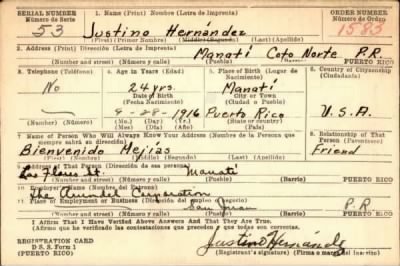 SERIAL NUMBER 1. Name (Print) Nombre (Letra de Imprenta) ORDER NUMBER
Número de Serie Número de Orden
53 Justino Hernández 1583
(First) Primer Nombre (Middle) Segundo (Last) Apellido
2. Address (Print) Dirección (Letra de Imprenta)
Manatí Coto Norte P.R.
(Number and street) Número y calle) (Town) Ciudad o Pueblo) PUERTO RICO
3. Telephone (Teléfono) 4. Age in Years (Edad) 5. Place of Birth (Lugar de Nacimiento) 6. Country of Citizenship (Ciudadanía)
No 24 yrs. Manatí
Date of Birth City or Town
(Fecha Nacimiento) (Ciudad o Pueblo)
9-28-1916 Puerto Rico U.S.A.
(Mo.) (Day) (Yr.)
(Mes) (Día) (Año)
7. Name of Person Who Will Always Know Your Address (Nombre de la Persona que siempre sabrá su dirección) 8. Relationship of That Person (Parentesco)
Bienvenido Mejías Friend
(First) Primer Nombre (Middle) Segundo (Last) Apellido
9. Address of That Person (Dirección de esa persona)
Las Flores St. Manatí
(Number and street) (Número y calle) (Town) Ciudad o Pueblo) PUERTO RICO
10. Employer's Name (Nombre del Patrono)
The Arundel Corporation
11. Place of Employment or Business (Dirección del empleo o negocio)
San Juan P.R.
(Number and street) (Número y calle) (Town) (Ciudad o Pueblo) PUERTO RICO
I Affirm That I Have Verified Above Answers And That They Are True.
(Afirmo que he verificado las contestaciones que preceden y que todas son ciertas).
REGISTRATION CARD
D.S.S. Form 1
(PUERTO RICO)
Justino Hernández
Registrant's signature (Firma o marca del inscrito)